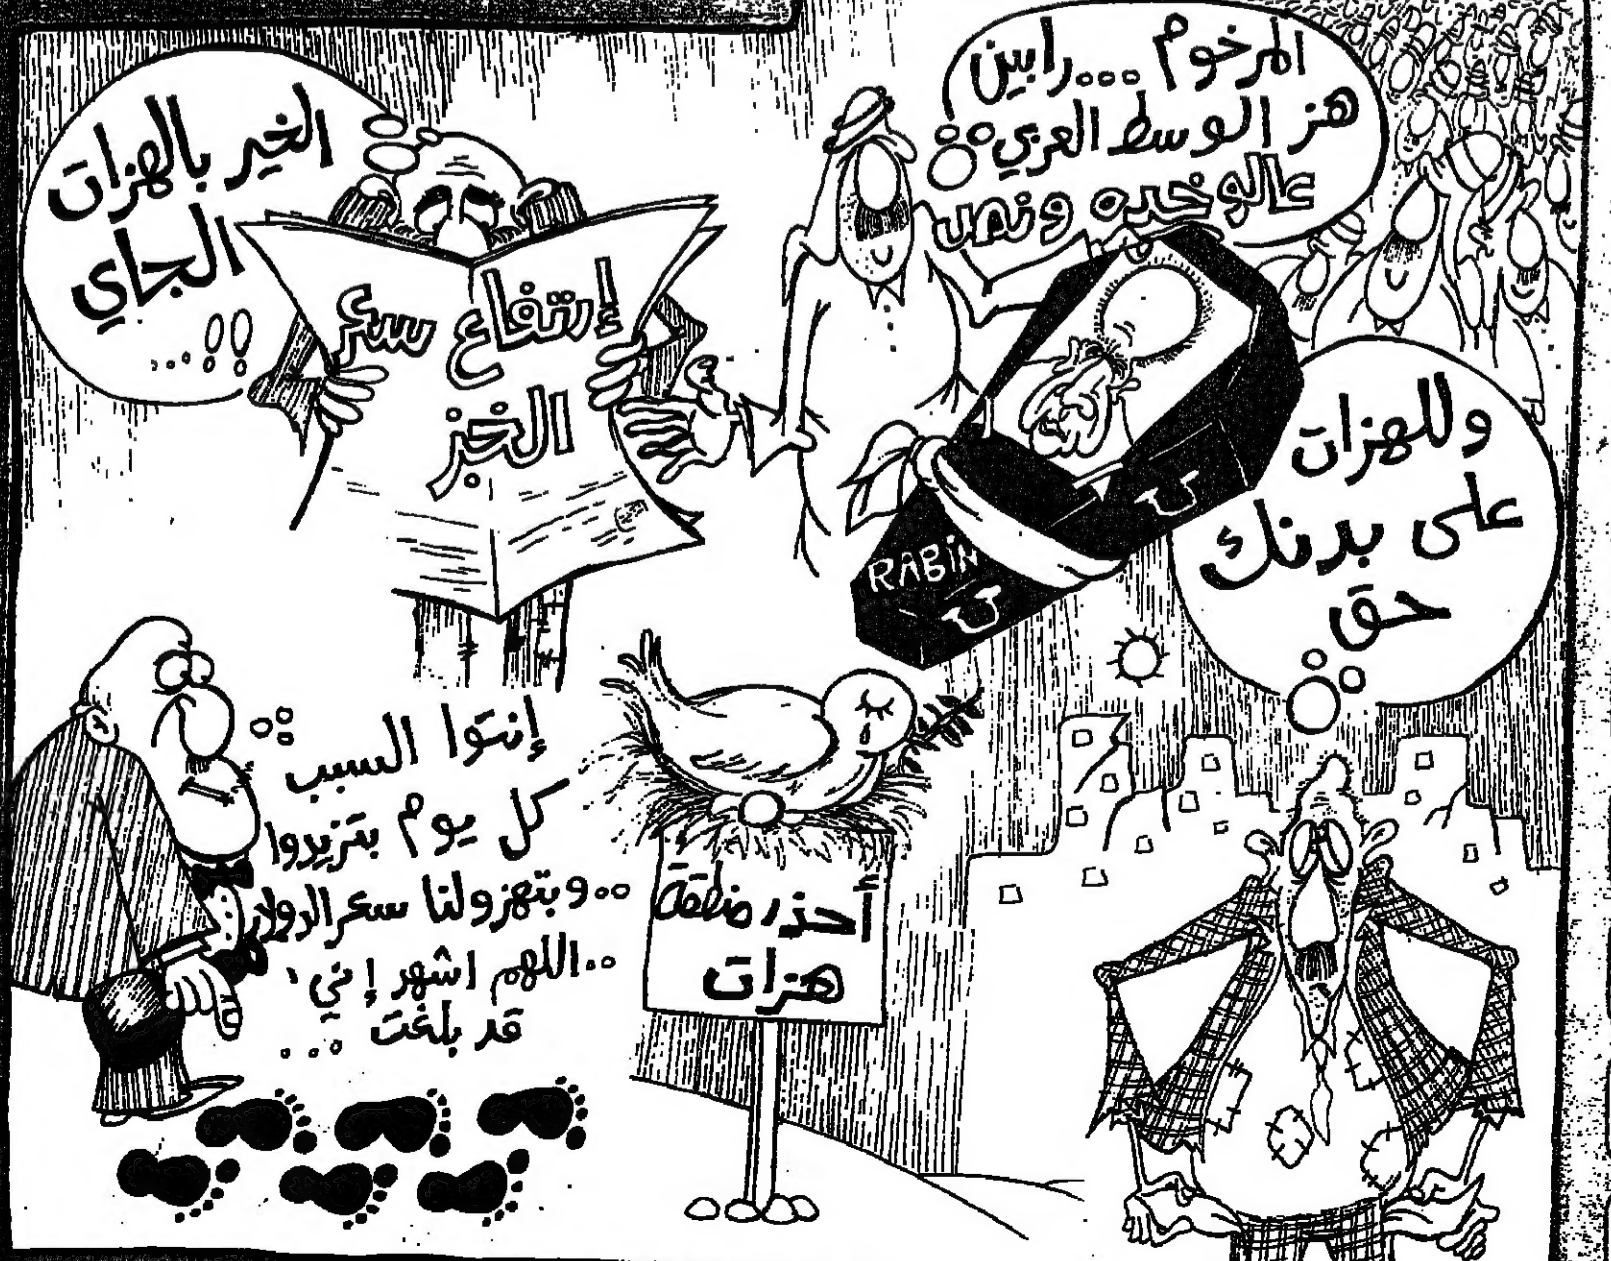 المرخوم ...رابين
هز الوسط العربي
عالوخده ونص
الخير بالهزات
الجاي
...!!
إرتفاع سعر
الخبز
RABIN
وللهزات
على بدنك
حق
إنتوا السبب
كل يوم بتزيدوا
..وبتهزولنا سعر الدولار
..اللهم اشهر إني
قد بلغت ...
أحذر منطقة
هزات